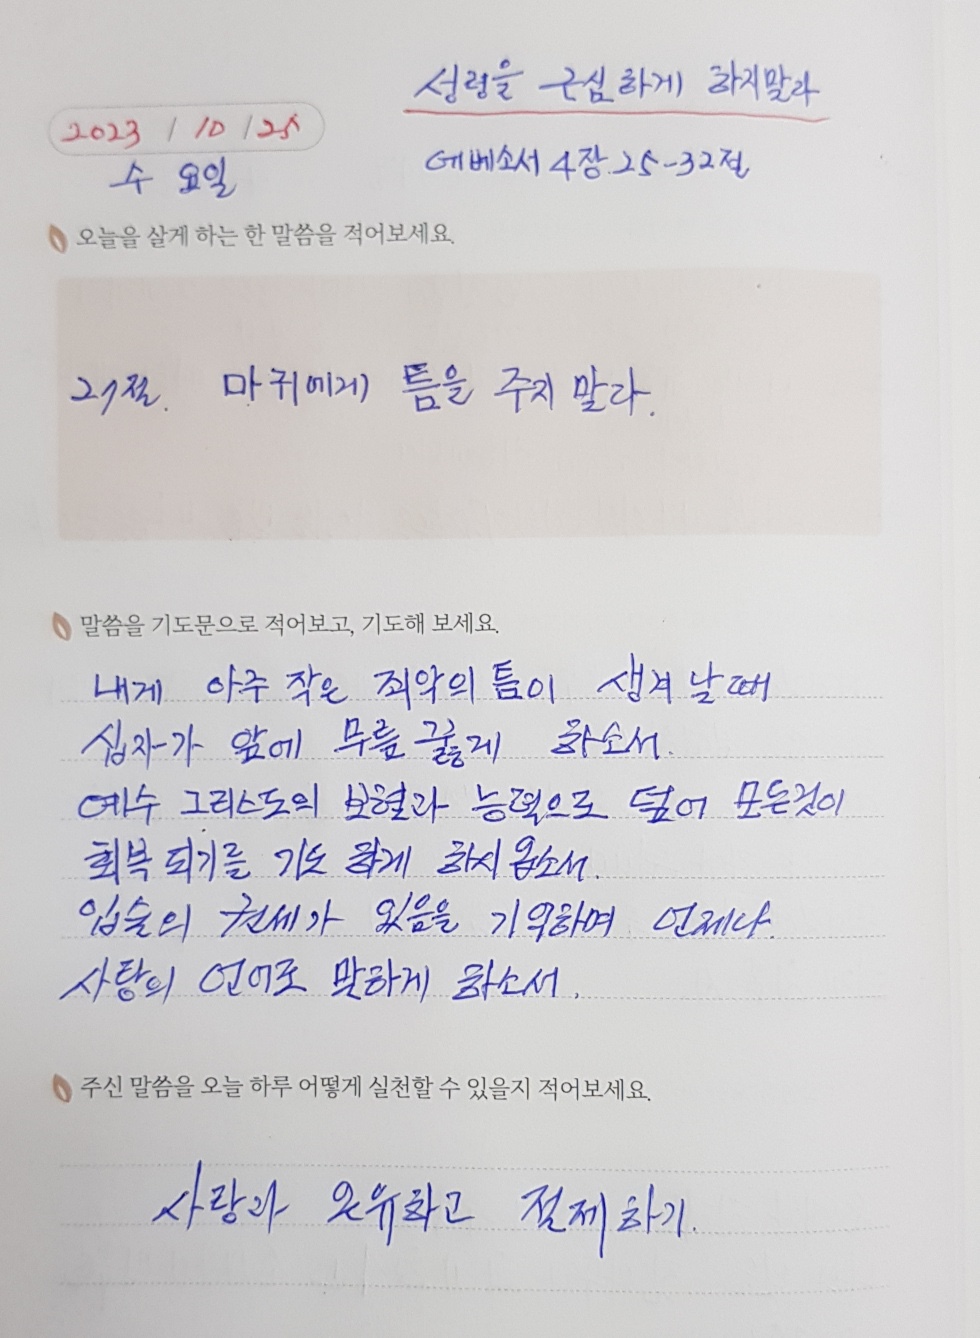 성령을 근심하게 하지말라
2023 / 10 / 25
수요일
에베소서 4장.25-32절
오늘을 살게 하는 한 말씀을 적어보세요.
27절. 마귀에게 틈을 주지 말라.
말씀을 기도문으로 적어보고, 기도해 보세요.
내게 아주 작은 죄악의 틈이 생겨 날때
십자가 앞에 무릎 꿇게 하소서.
예수 그리스도의 보혈과 능력으로 덮어 모든것이
회복 되기를 기도 하게 하시옵소서.
입술의 권세가 있음을 기억하며 언제나.
사랑의 언어로 말하게 하소서.
주신 말씀을 오늘 하루 어떻게 실천할 수 있을지 적어보세요.
사랑과 온유하고 절제하기.